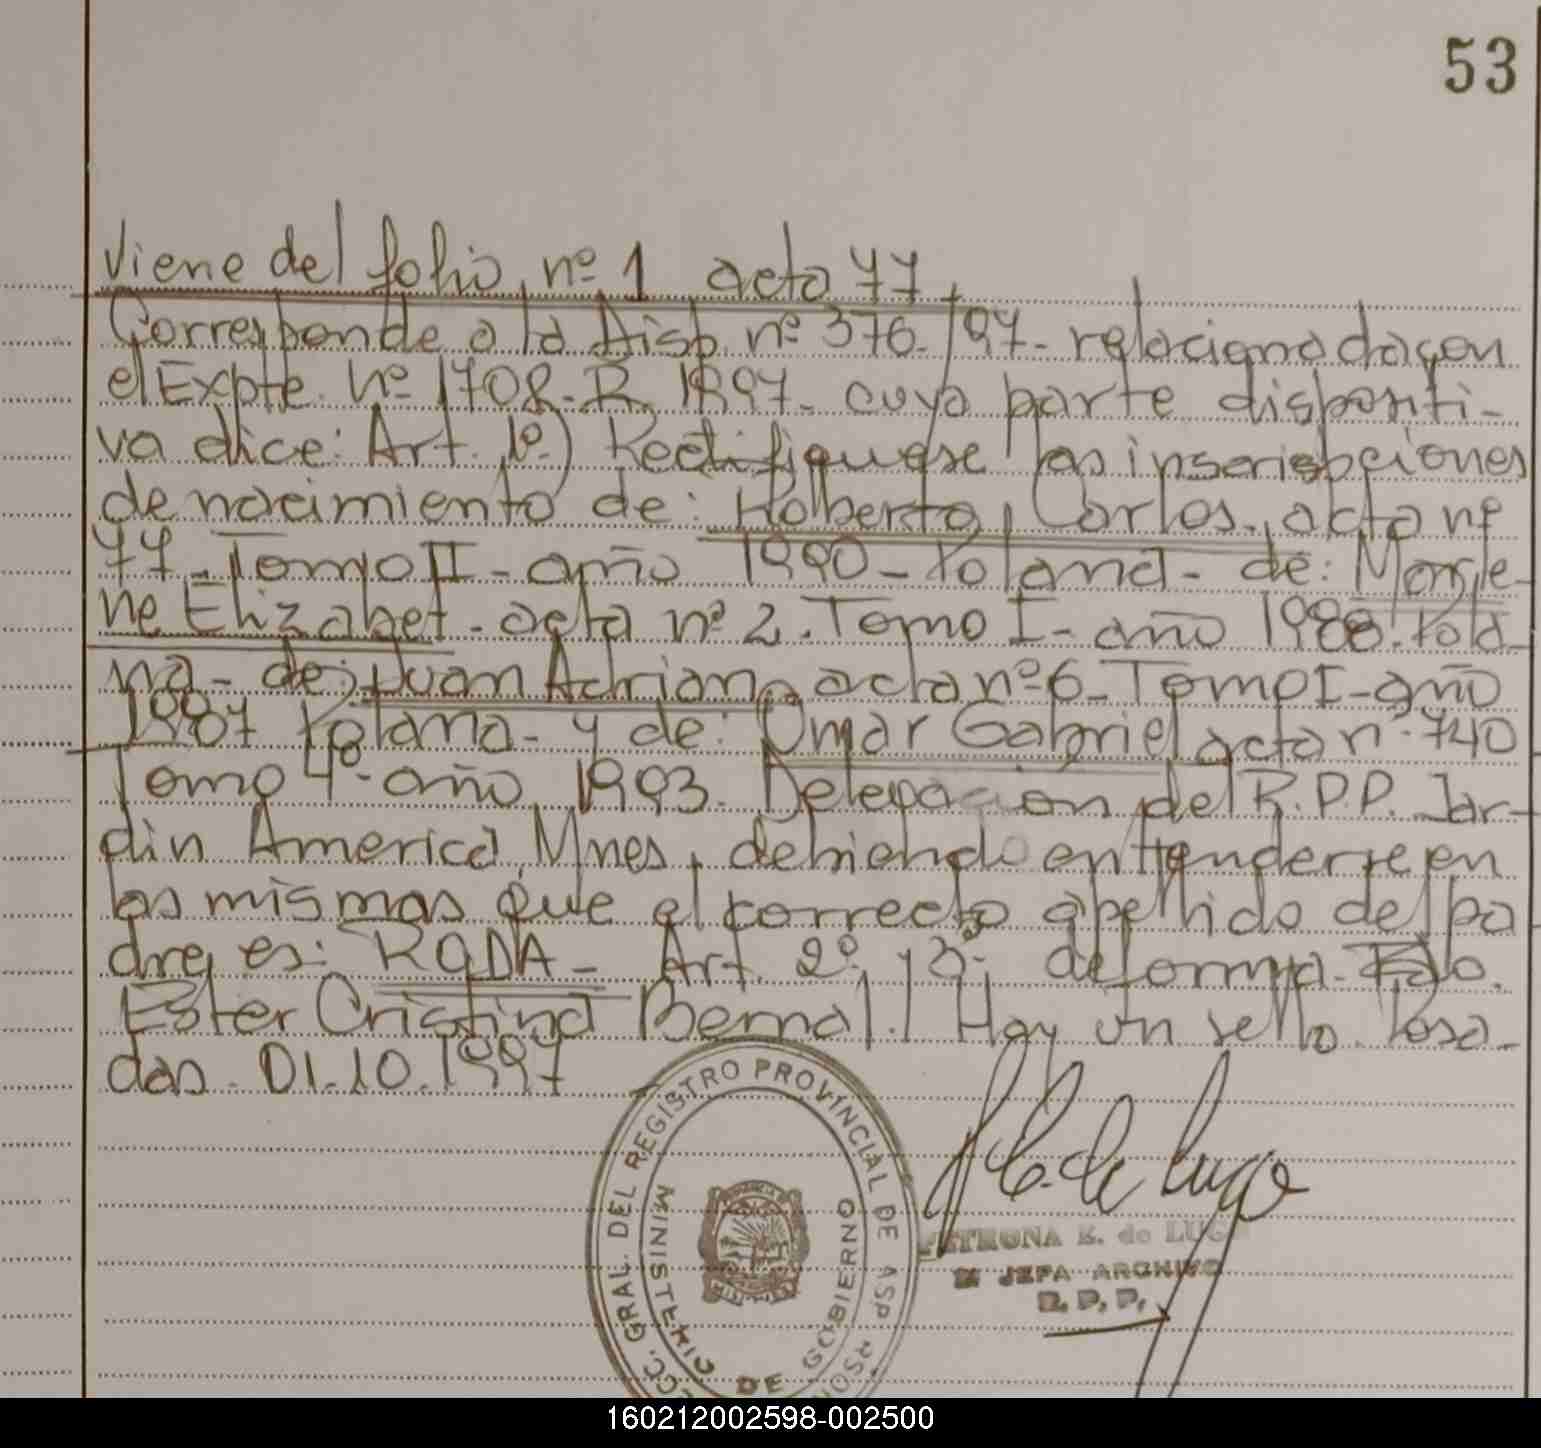 53
Viene del folio nº 1 acta 77.
Corresponde a la Disp. nº 376-/97- relacionada con
el Expte. nº 1708-R 1997- cuya parte dispositi-
va dice: Art. 1º) Rectifiquese las inscripciones
de nacimiento de: Rolberto, Carlos, acta nº
77- Tomo II- año 1990- Poland- de: Marle-
ne Elizabet- acta nº 2. Tomo I- año 1988. Pola
na- de: Juan Adrian, acta nº 6- Tomo I- año
1987 Polana- y de: Omar Gabriel acta nº 740
Tomo 4º- año 1993. Delegación del R.P.P. Jar-
din America, Mnes, debiendo entenderse en
las mismas que el correcto apellido del pa
dre, es: RODA- Art. 2º, y 3º; de forma. Fdo.
Ester Cristina Bernal. Hay un sello Posa-
das. 01.10.1997
CC. GRAL. DEL REGISTRO PROVINCIAL DE
MINISTERIO DE GOBIERNO
PETRONA E. de LUGO
JEFA ARCHIVO
R. P. P.
160212002598-002500